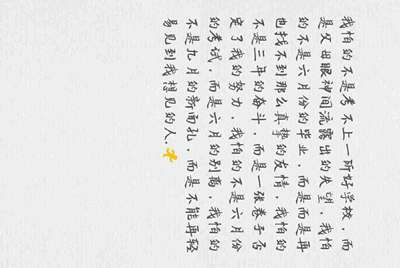 我怕的不是考不上一所好学校，而
是父母眼神间流露出的失望，我怕
的不是六月份的毕业，而是而是再
也找不到那么真挚的友情，我怕的
不是三年的奋斗，而是一张卷子否
定了我的努力，我怕的不是六月份
的考试，而是六月的别离，我怕的
不是九月的新面孔，而是不能再轻
易见到我想见的人.